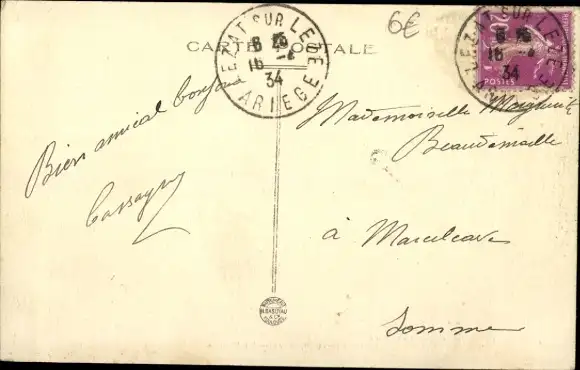 6€
CARTE POSTALE
LEZAT SUR LEZE
16 -2
34
ARIEGE
LEZAT SUR LEZE
16 -2
34
20
POSTES
Bien amical bonjour
Cassagne
Mademoiselle
Beaudemaille
à Marcelcave
Somme